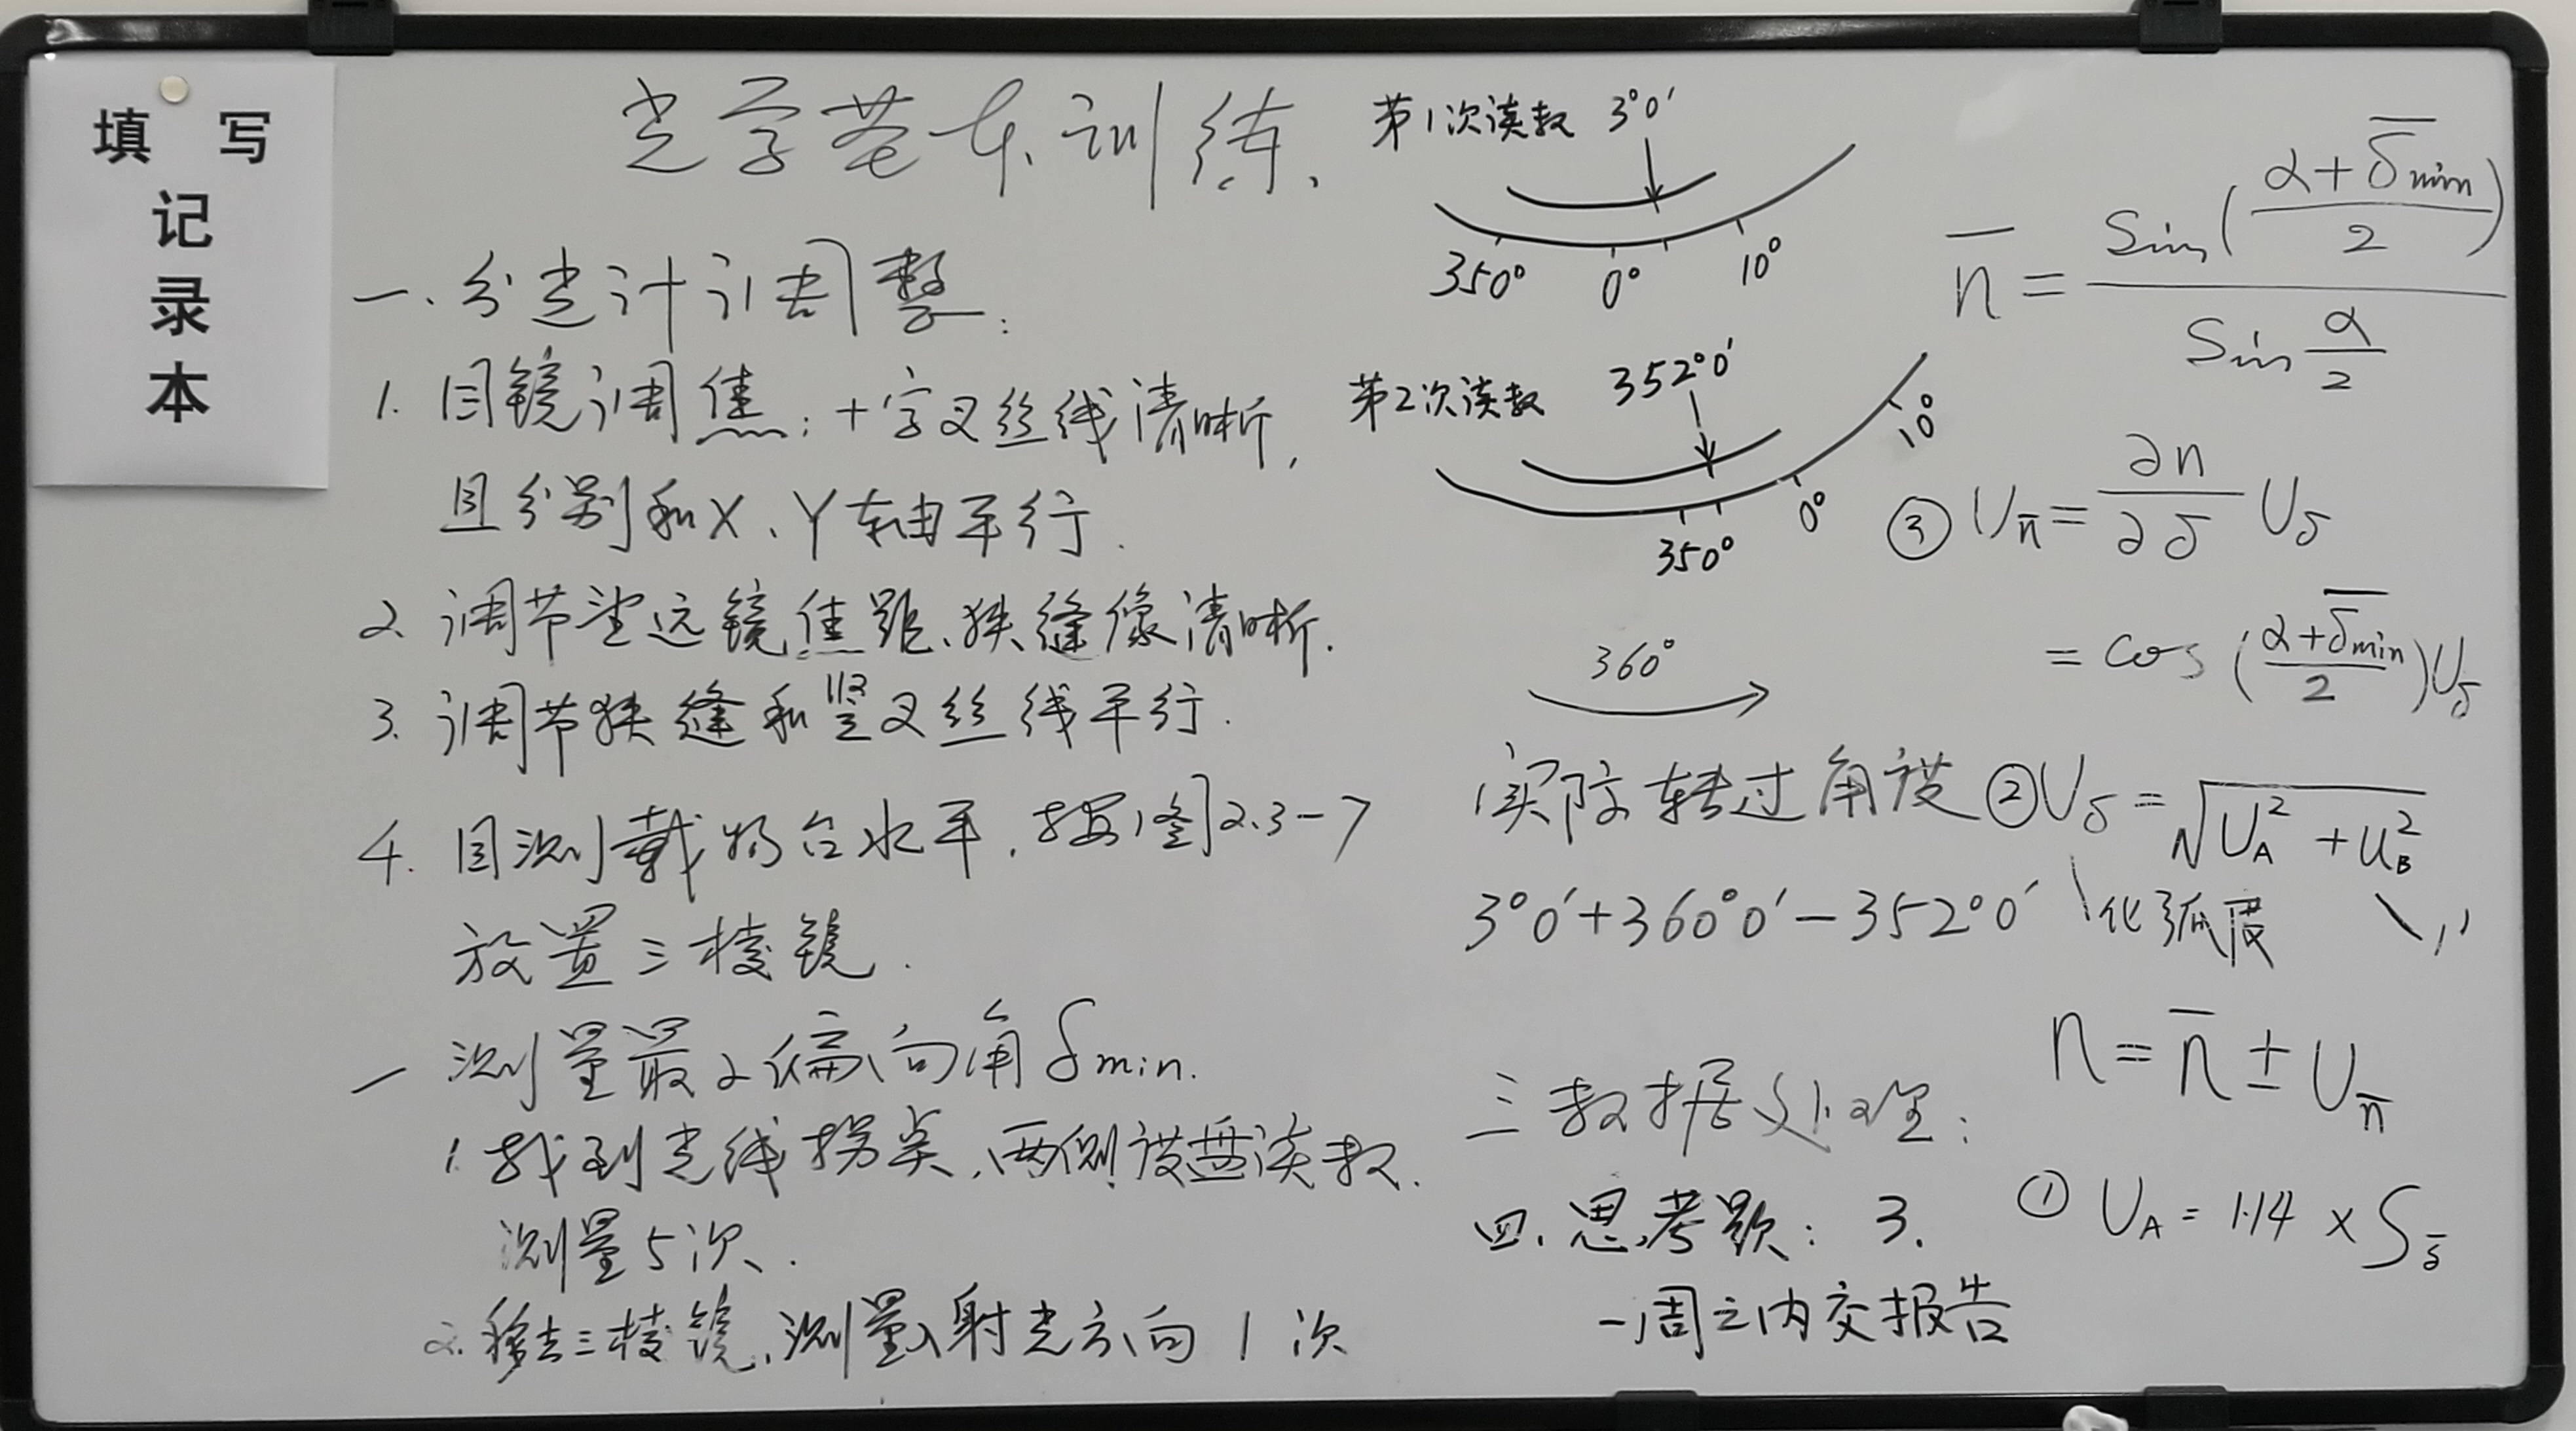 填 写
记
录
本
光学基本训练.
一.分光计调整:
1. 目镜调焦:十字叉丝线清晰,
且分别和X、Y轴平行.
2. 调节望远镜焦距、狭缝像清晰.
3. 调节狭缝和竖叉丝线平行.
4. 目测载物台水平.按图2.3-7
放置三棱镜.
一 测量最小偏向角δmin.
1. 找到光线拐点,两侧度盘读数.
测量5次.
2. 移去三棱镜,测量入射光方向1次
第1次读数 3°0′
350° 0° 10°
第2次读数 352°0′
350° 0° 10°
360°
实际转过角度
3°0′+360°0′−352°0′
三 数据处理:
四.思考题: 3.
一周之内交报告
n̄ = sin((α+δ̄min)/2) / sin(α/2)
③ Un̄ = ∂n/∂δ Uδ
= cos((α+δ̄min)/2)Uδ
② Uδ = √(UA² + uB²)
化弧度 〃
n = n̄ ± Un̄
① UA = 1.14 × Sδ̄